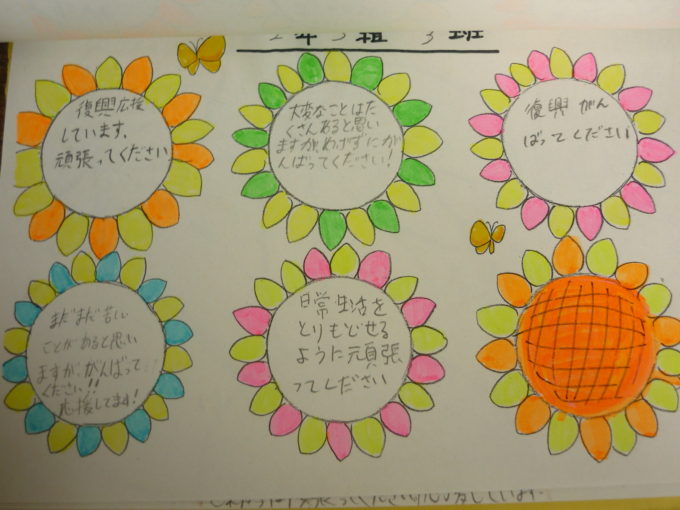 2年3組 3班
復興応援
しています。
頑張ってください
大変なことはた
くさんあると思い
ますが、めげずにが
んばってください!
復興 がん
ばってください
まだまだ苦しい
ことがあると思い
ますが、がんばって
ください!!
応援してます!
日常生活を
とりもどせる
ように頑張
ってください